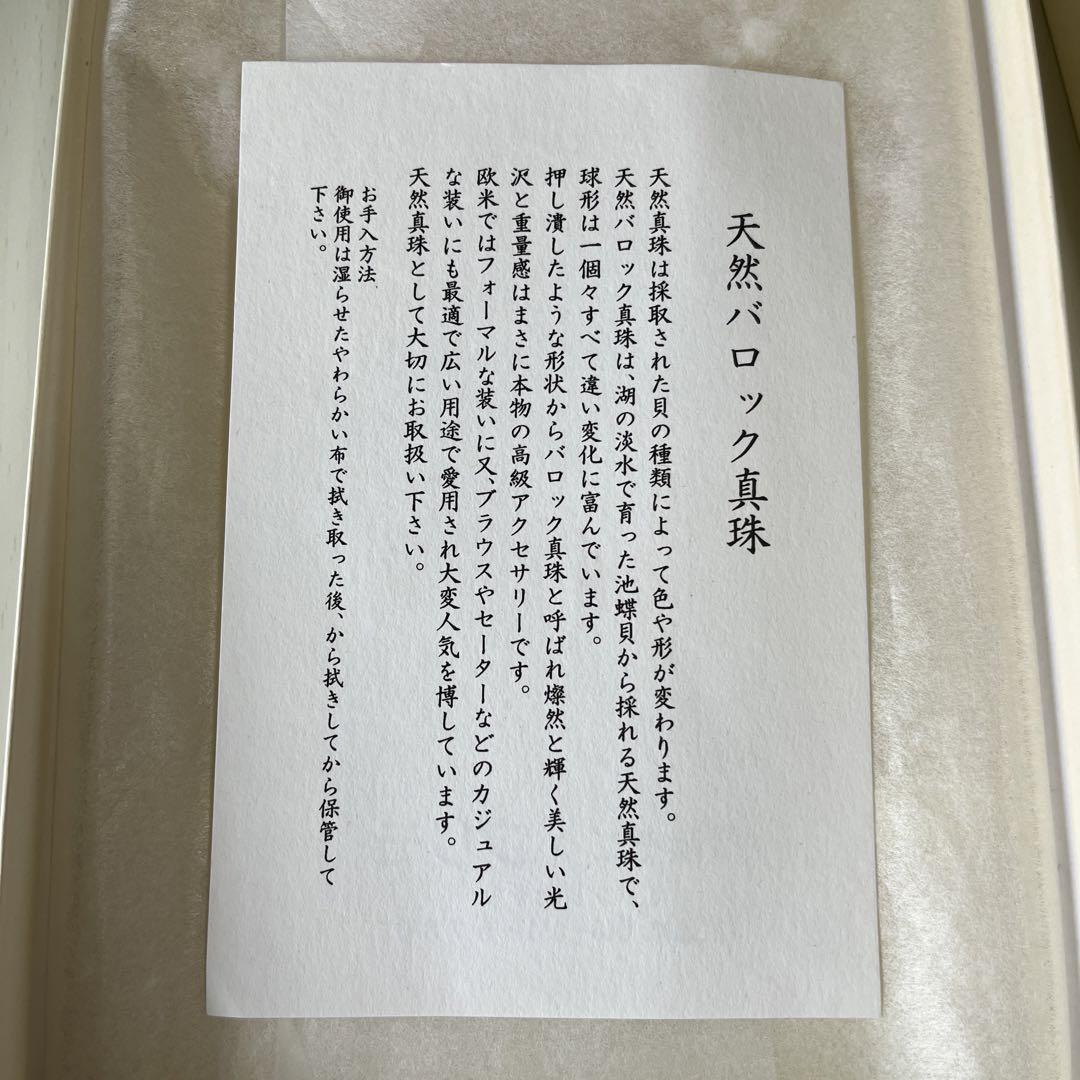 天然バロック真珠
天然真珠は採取された貝の種類によって色や形が変わります。
天然バロック真珠は、湖の淡水で育った池蝶貝から採れる天然真珠で、
球形は一個々すべて違い変化に富んでいます。
押し潰したような形状からバロック真珠と呼ばれ燦然と輝く美しい光
沢と重量感はまさに本物の高級アクセサリーです。
欧米ではフォーマルな装いに又、ブラウスやセーターなどのカジュアル
な装いにも最適で広い用途で愛用され大変人気を博しています。
天然真珠として大切にお取扱い下さい。
お手入方法、
御使用は湿らせたやわらかい布で拭き取った後、から拭きしてから保管して
下さい。